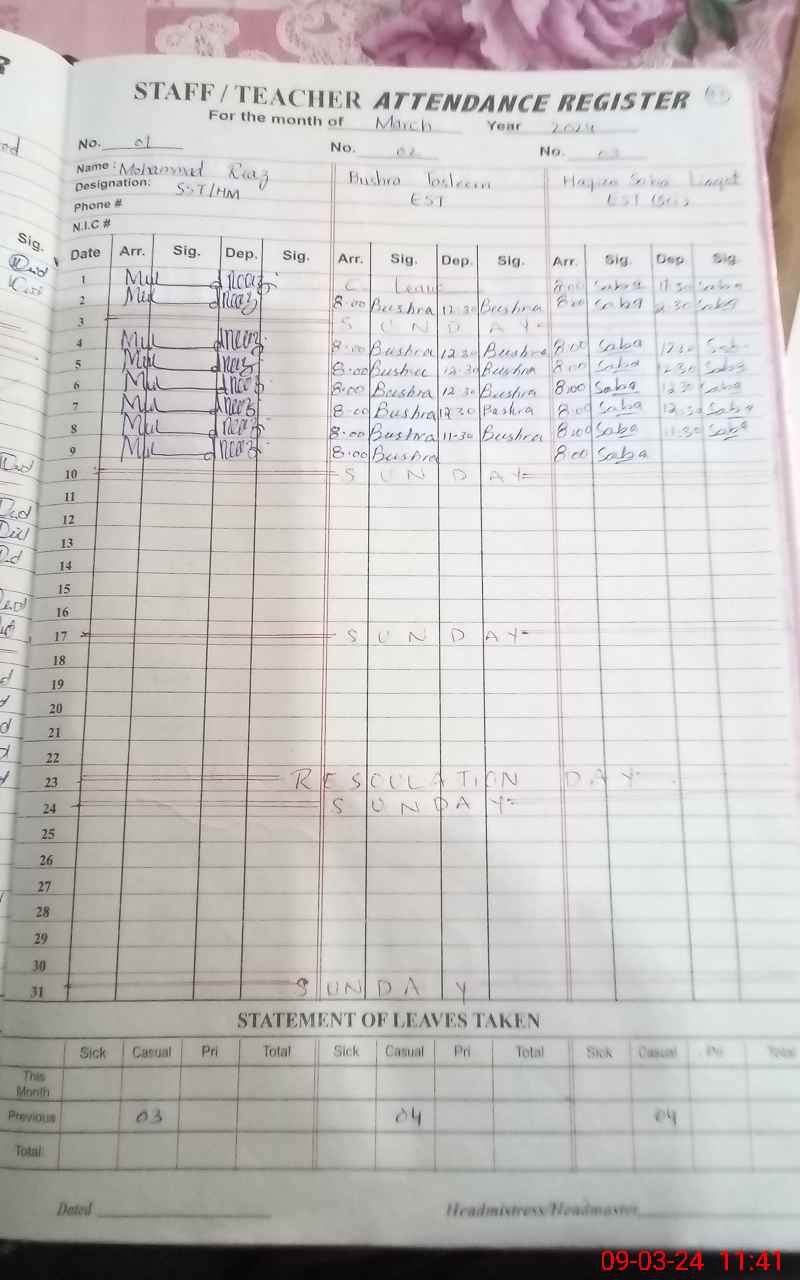 STAFF / TEACHER ATTENDANCE REGISTER
For the month of March Year 2024
No. 01 No. 02 No. 03
Name : Mohammad Riaz Bushra Tasleem Saba Liaqat
Designation: SST/HM EST EST (Sci)
Phone #
N.I.C #
Date Arr. Sig. Dep. Sig. Arr. Sig. Dep. Sig. Arr. Sig. Dep Sig.
1 C. Leave 8:00 Saba 11.30 Saba
2 8.00 Bushra 12.30 Bushra 8:00 Saba 12.30 Saba
3 S U N D A Y
4 8:00 Bushra 12 30 Bushra 8:00 Saba 12 30 Sab
5 8:00 Bushra 12.30 Bushra 8:00 Saba 12.30 Saba
6 8:00 Bushra 12 30 Bushra 8:00 Saba 12 30 Saba
7 8-00 Bushra 12 30 Bushra 8:00 Saba 12.30 Saba
8 8:00 Bushra 11-30 Bushra 8:00 Saba 11.30 Saba
9 8:00 Bushra 8:00 Saba
10 S U N D A Y
11
12
13
14
15
16
17 S U N D A Y
18
19
20
21
22
23 RESOULATION DAY
24 S U N D A Y
25
26
27
28
29
30
31 SUNDAY
STATEMENT OF LEAVES TAKEN
Sick Casual Pri Total Sick Casual Pri Total Sick Casual Pri Total
This Month
Previous 03 04 04
Total:
Dated Headmistress/Headmaster
09-03-24 11:41